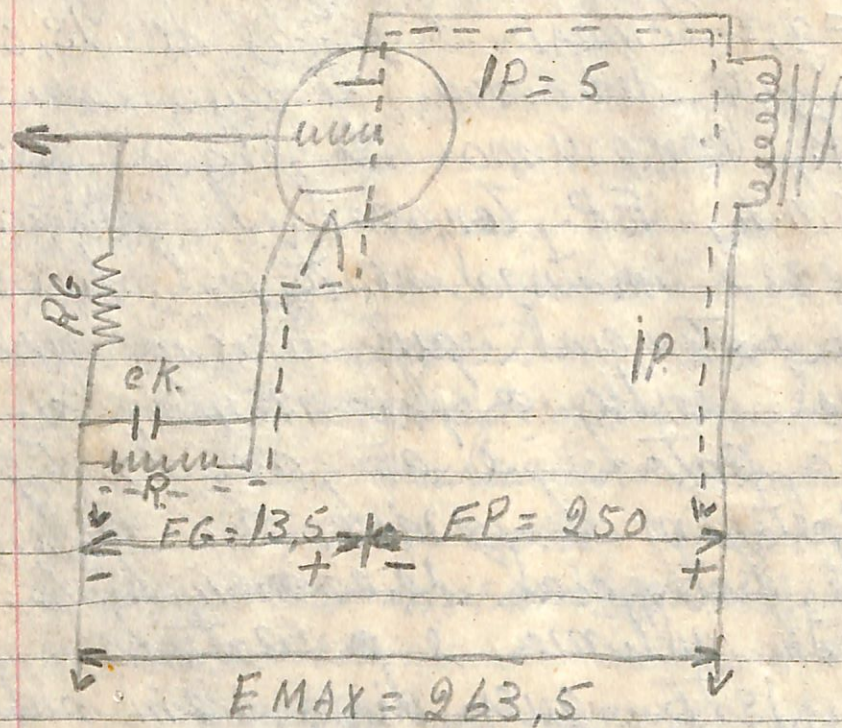 IP = 5
RG
CK.
IP.
R.
EG = 13,5
EP = 250
- + - +
E MAX = 263,5